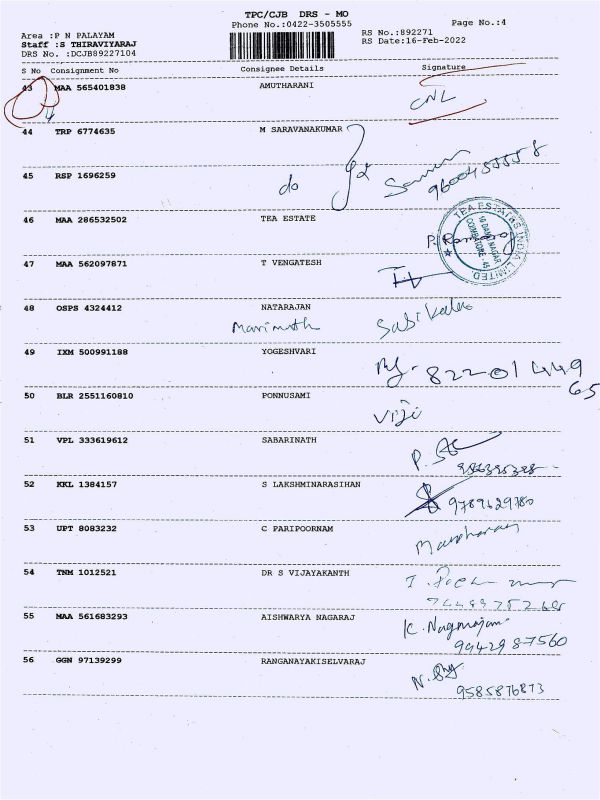 TPC/CJB DRS - MO
Phone No.:0422-3505555
Page No.:4
Area :P N PALAYAM
Staff :S THIRAVIYARAJ
DRS No. :DCJB89227104
RS No.:892271
RS Date:16-Feb-2022
S No Consignment No Consignee Details Signature
43 MAA 565401838 AMUTHARANI
CNL
44 TRP 6774635 M SARAVANAKUMAR
45 RSP 1696259 do
46 MAA 286532502 TEA ESTATE
TEA ESTATES INDIA LIMITED
COIMBATORE - 45
47 MAA 562097871 T VENGATESH
48 OSPS 4324412 NATARAJAN
Marimuth Sasikala
49 IXM 500991188 YOGESHVARI
82201449
65
50 BLR 2551160810 PONNUSAMI
Viji
51 VPL 333619612 SABARINATH
52 KKL 1384157 S LAKSHMINARASIHAN
9789629780
53 UPT 8083232 C PARIPOORNAM
54 TNM 1012521 DR S VIJAYAKANTH
55 MAA 561683293 AISHWARYA NAGARAJ
K. Nagmajan
9942987560
56 GGN 97139299 RANGANAYAKISELVARAJ
9585876873